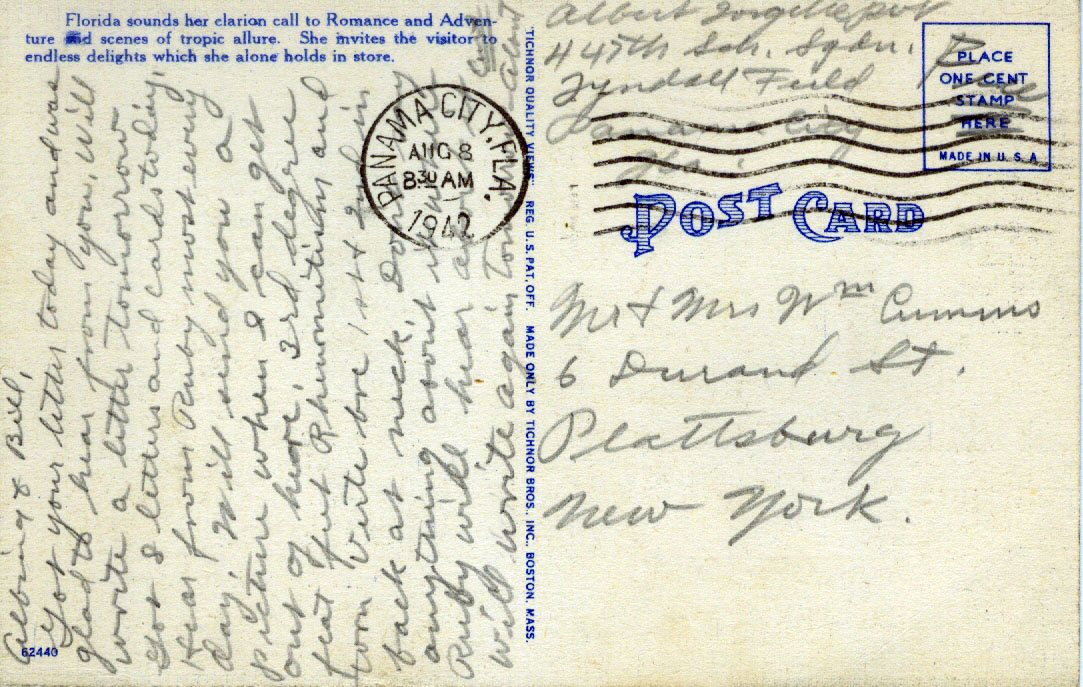 Florida sounds her clarion call to Romance and Adven-
ture and scenes of tropic allure. She invites the visitor to
endless delights which she alone holds in store.
Albina & Bill,
Got your letter today and was
glad to hear from you. Will
write a letter tomorrow
Got 8 letters and cards today.
Hear from Ruby most every
day. Will send you a
picture when I can get
out of here. 3rd degree
feat put and
toon bone 1st
back at neck. Don't
anything about
Ruby will hear
will write again
62440
PANAMA CITY, FLA.
AUG 8
8 30 AM
1942
"TICHNOR QUALITY VIEWS" REG. U. S. PAT. OFF. MADE ONLY BY TICHNOR BROS., INC., BOSTON, MASS.
Albert
447th Sch. Sqdn.
Tyndall Field
Panama City
Fla.
Free
PLACE
ONE CENT
STAMP
HERE
MADE IN U. S. A
POST CARD
Mr & Mrs Wm Cumms
6 Durand St.
Plattsburg
New York.